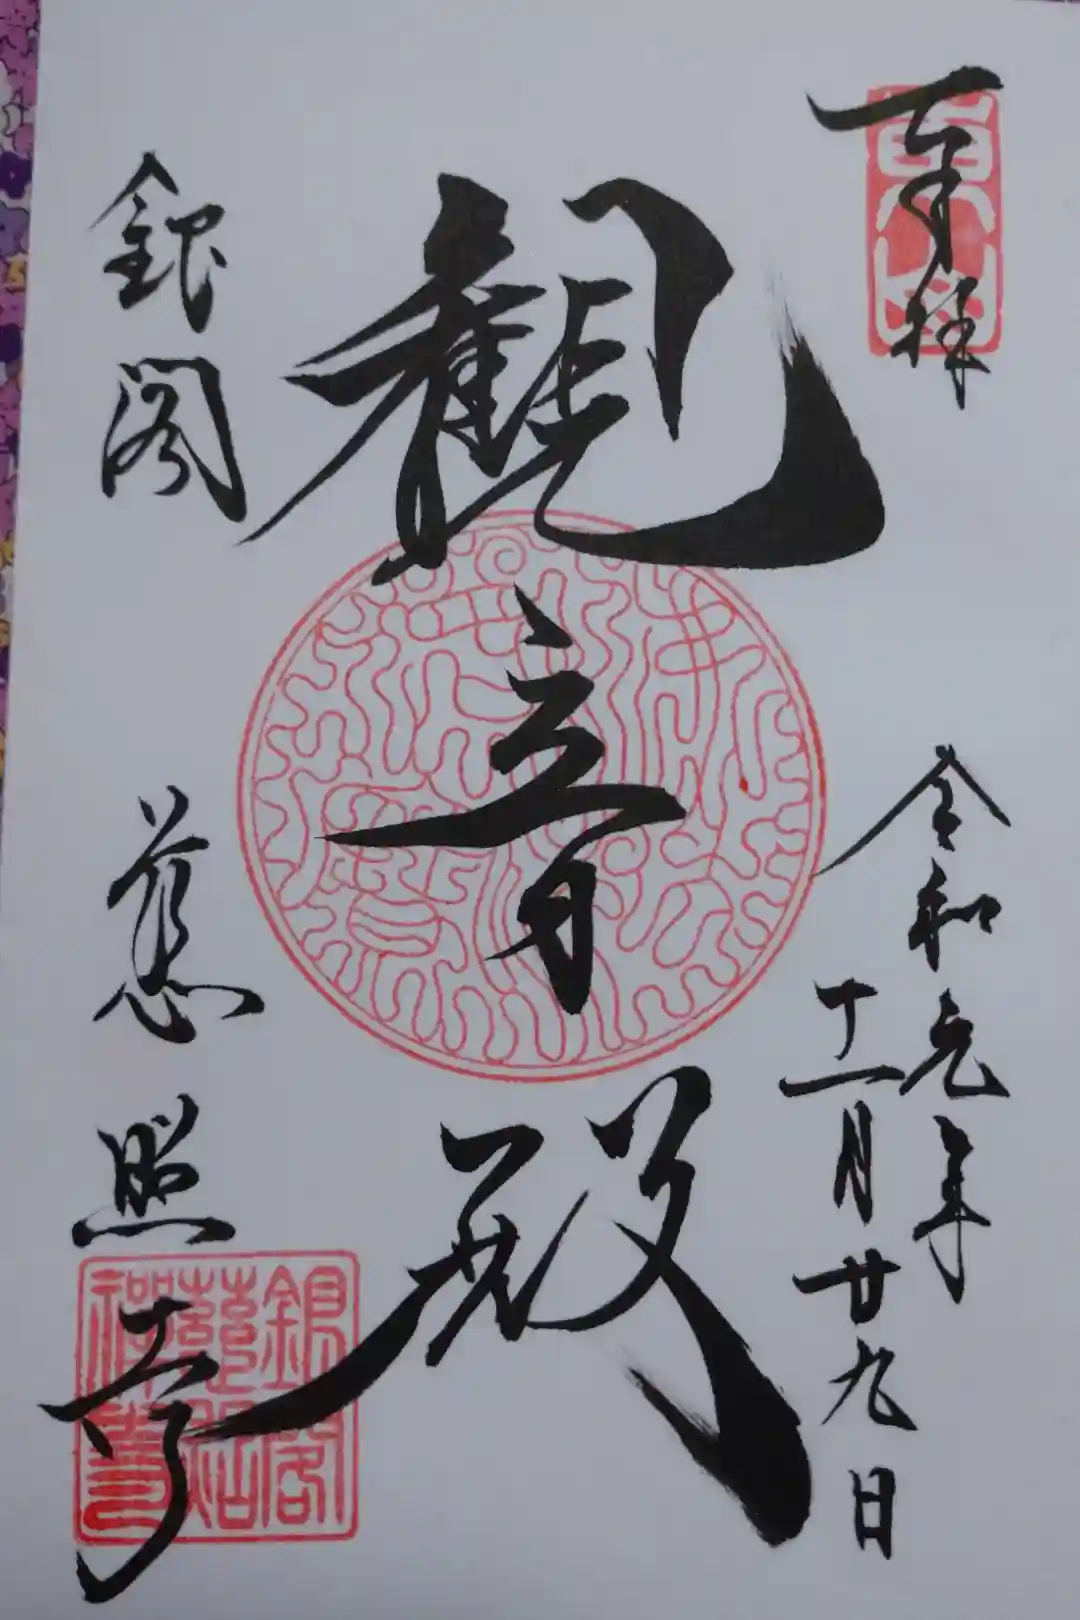 奉拝
令和元年
十一月廿九日
観音殿
銀閣
慈照寺
銀閣
慈照
禅寺